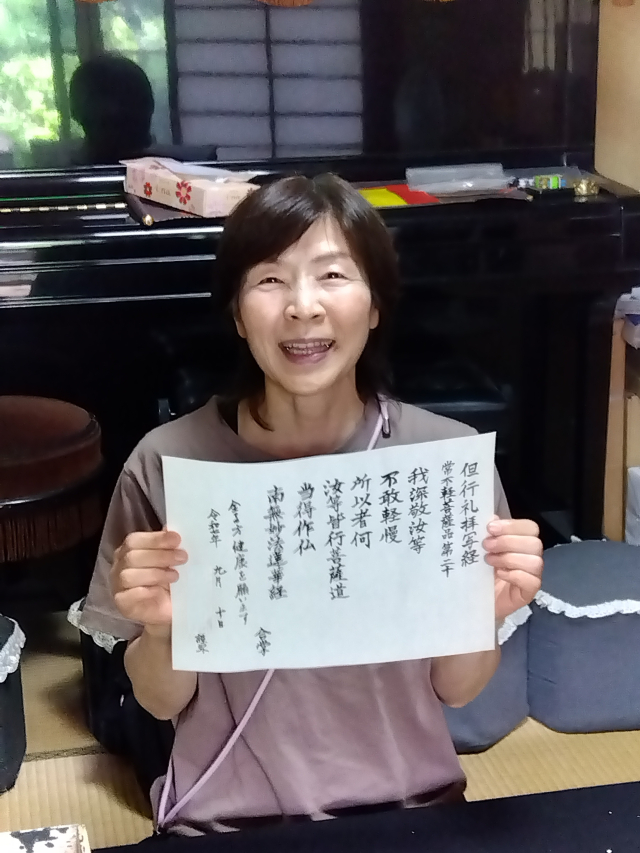 但行礼拝写経
常不軽菩薩品第二十
我深敬汝等
不敢軽慢
所以者何
汝等皆行菩薩道
当得作仏
南無妙法蓮華経
合掌
健康を願います
令和 年 九月 十日
謹写